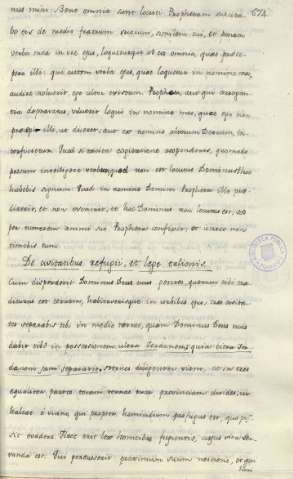 nus mihi: Bene omnia sunt locuti. Prophetam suscita 574
bo eis de medio fratrum suorum, similem tui, et ponam
verba mea in ore ejus, loqueturque ad eos omnia quae praece
pero illi: qui autem verba ejus, quae loquetur in nomine meo,
audire noluerit ego ultor existam. Propheta autem qui arrogan
tia depravatus, voluerit loqui in nomine meo, quae ego non
praecepi illi, ut diceret, aut ex nomine alienorum Deorum, in
terficietur. Quod si tacita cogitatione responderis, quomodo
possum intelligere verbum quod non est locutus Dominus? hoc
habebis signum: Quod in nomine Domini Propheta ille prae
dixerit, et non evenerit, et hoc Dominus non locutus est, sed
per tumorem animi sui Propheta confinxit, et idcirco non
timebis eum.
De civitatibus refugii, et lege talionis.
Cum disperderit Dominus Deus tuus gentes, quarum tibi tra
diturus est terram, habitaverisque in urbibus ejus, tres civita
tes separabis tibi in medio terrae, quam Dominus Deus tuus
dabit tibi in possessionem
sternes diligenter viam, et in tres
aequaliter partes totam terrae tuae provinciam divides, ut
habeat e vicino qui propter homicidium profugus est, quo pos
sit evadere. Haec erit lex homicidae fugientis, cujus vita ser
vanda est. Qui percusserit proximum suum nesciens, et qui